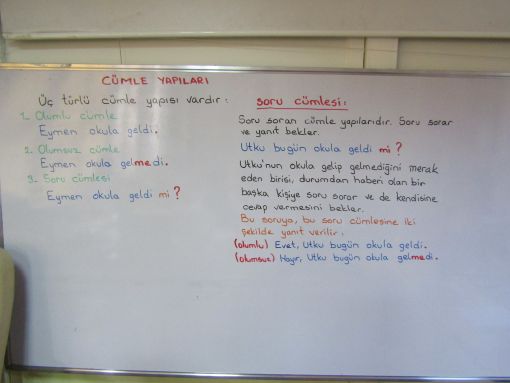 CÜMLE YAPILARI
Üç türlü cümle yapısı vardır:
1. Olumlu cümle
Eymen okula geldi.
2. Olumsuz cümle
Eymen okula gelmedi.
3. Soru cümlesi
Eymen okula geldi mi?
Soru cümlesi:
Soru soran cümle yapılarıdır. Soru sorar
ve yanıt bekler.
Utku bugün okula geldi mi?
Utku'nun okula gelip gelmediğini merak
eden birisi, durumdan haberi olan bir
başka kişiye soru sorar ve de kendisine
cevap vermesini bekler.
Bu soruya, bu soru cümlesine iki
şekilde yanıt verilir:
(olumlu) Evet, Utku bugün okula geldi.
(olumsuz) Hayır, Utku bugün okula gelmedi.